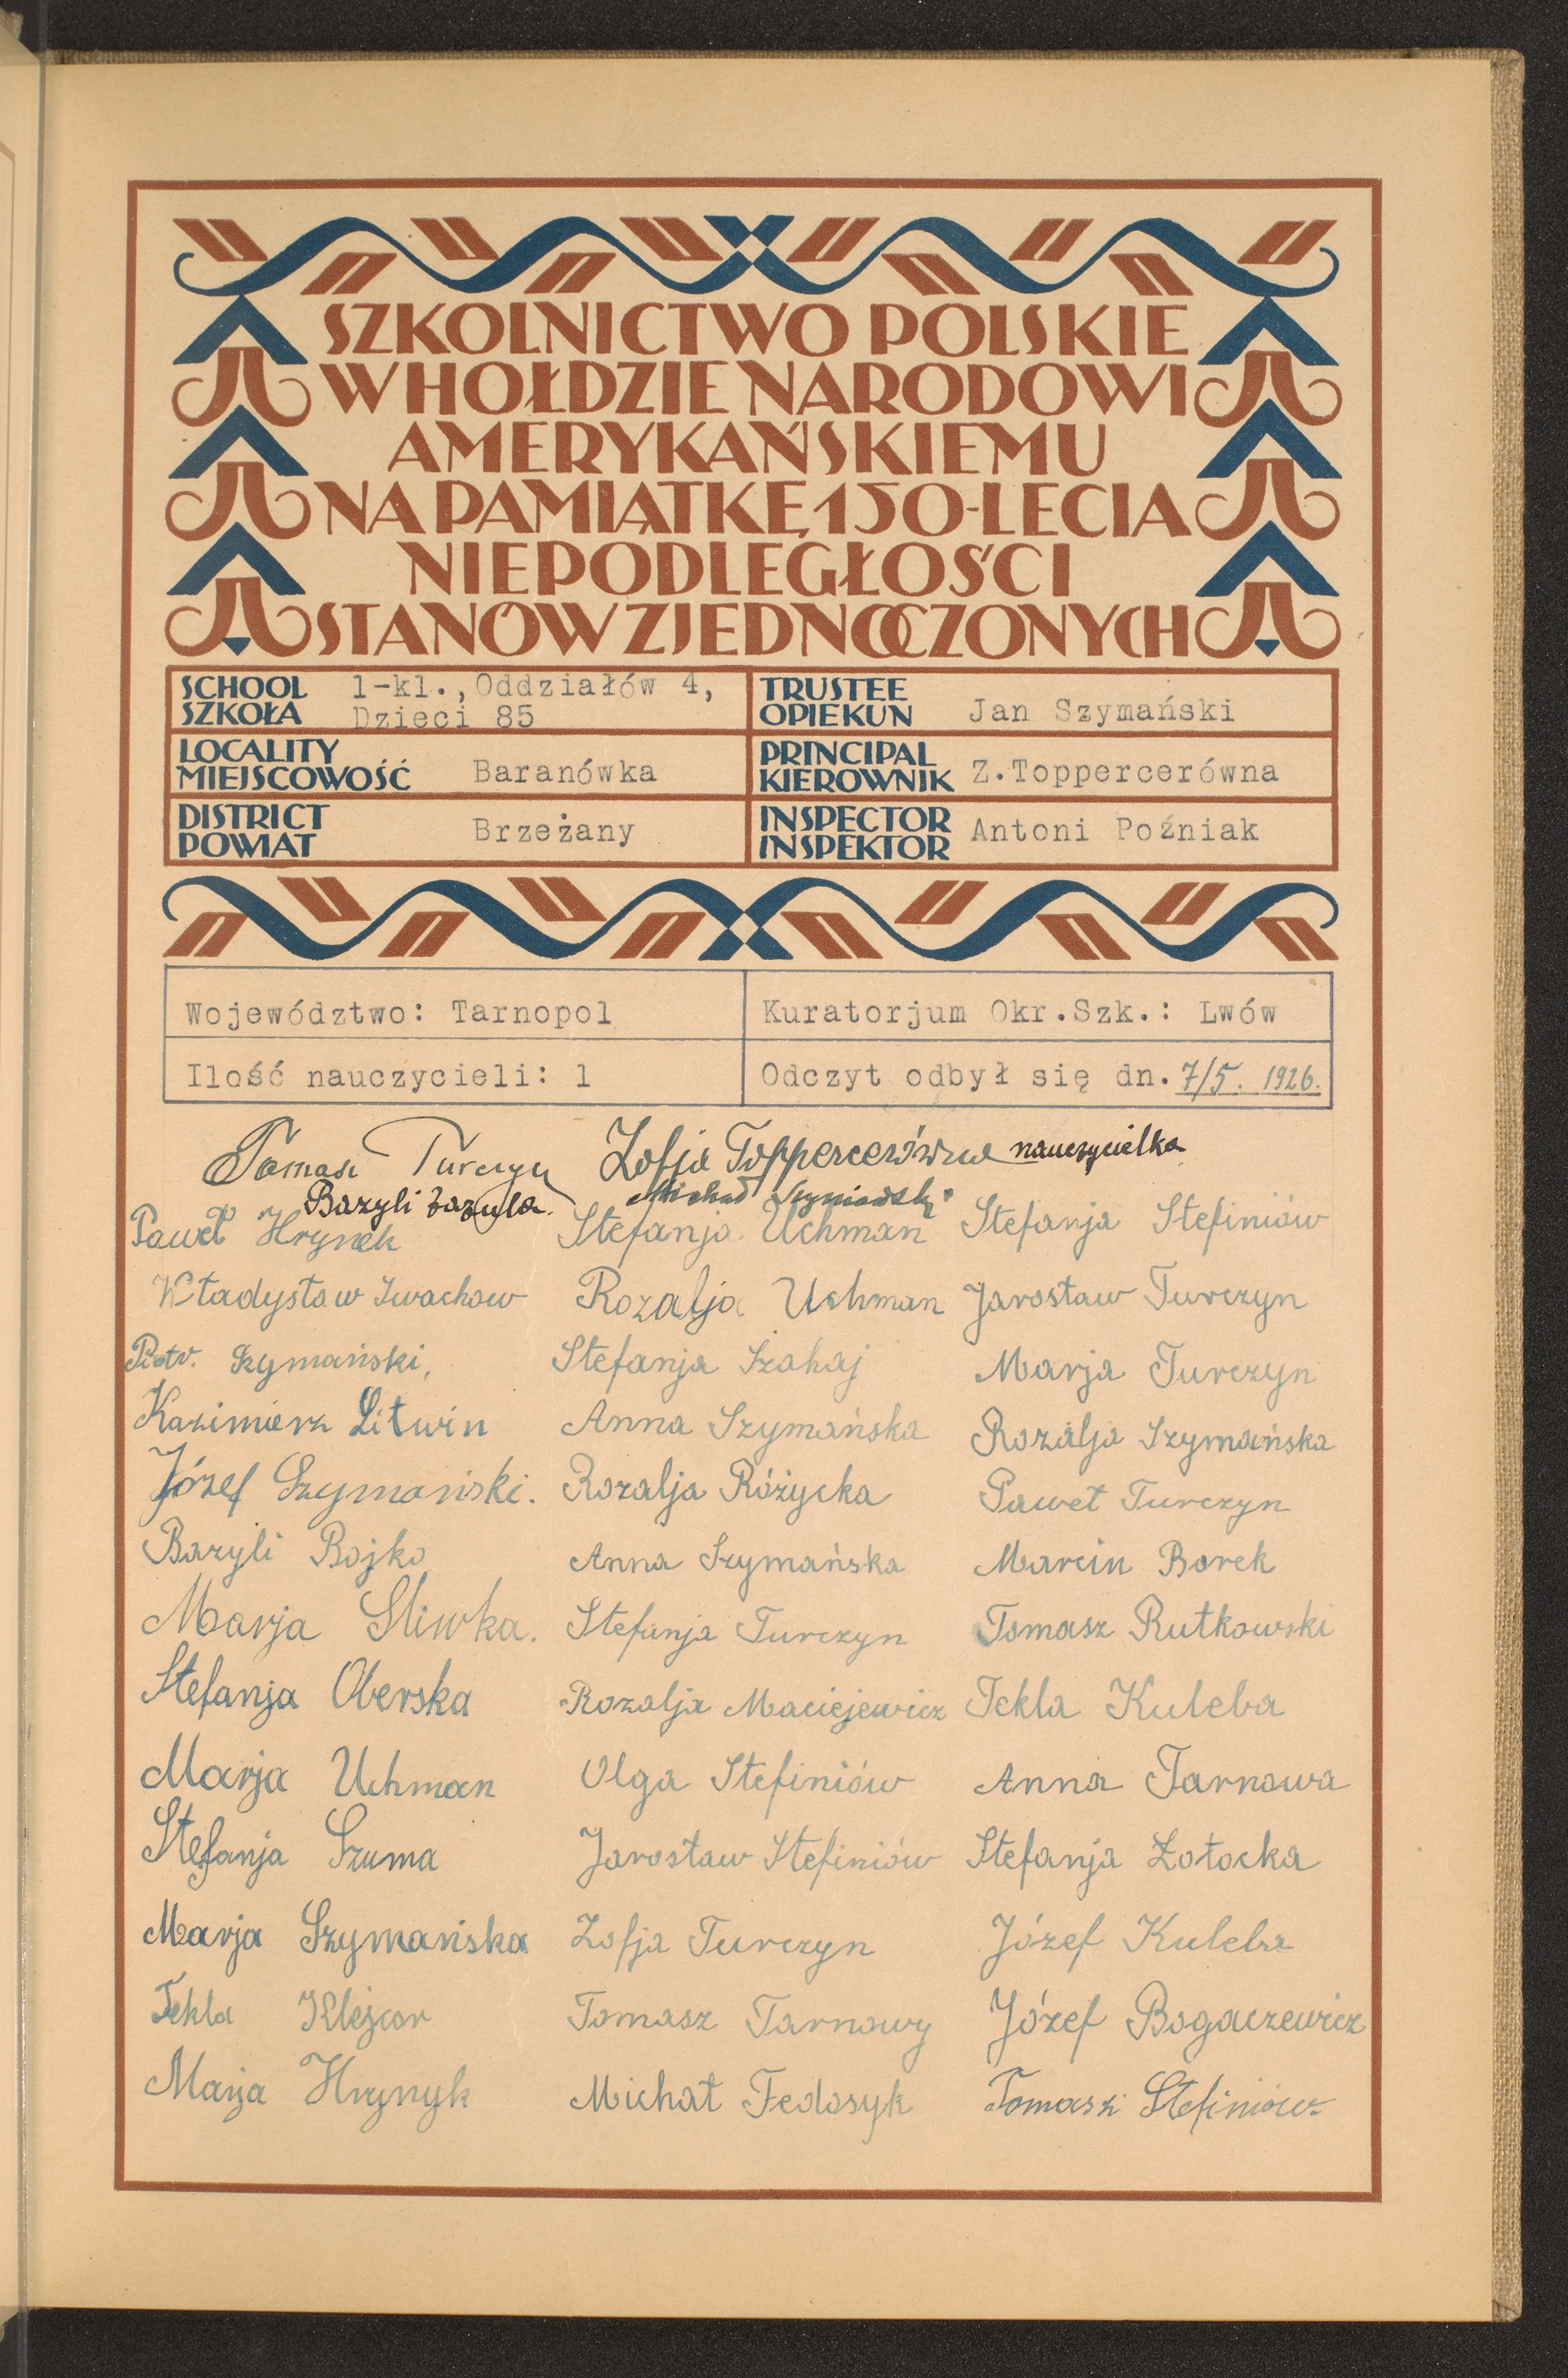 SZKOLNICTWO POLSKIE
W HOŁDZIE NARODOWI
AMERYKAŃSKIEMU
NA PAMIĄTKĘ 150-LECIA
NIEPODLEGŁOŚCI
STANÓW ZJEDNOCZONYCH
SCHOOL
SZKOŁA
1-kl., Oddziałów 4,
Dzieci 85
TRUSTEE
OPIEKUN
Jan Szymański
LOCALITY
MIEJSCOWOŚĆ
Baranówka
PRINCIPAL
KIEROWNIK
Z.Toppercerówna
DISTRICT
POWIAT
Brzeżany
INSPECTOR
INSPEKTOR
Antoni Poźniak
Województwo: Tarnopol
Kuratorjum Okr.Szk.: Lwów
Ilość nauczycieli: 1
Odczyt odbył się dn. 7/5. 1926.
Tomasz Turczyn
Zofja Toppercerówna nauczycielka
Bazyli
Michał
Paweł Hrynek
Stefanja Uchman
Stefanja Stefiniów
Władysław Iwachow
Rozalja Uchman
Jarosław Turczyn
Piotr. Szymański,
Stefanja Szahaj
Marja Turczyn
Kazimierz Litwin
Anna Szymańska
Rozalja Szymańska
Józef Szymański.
Rozalja Różycka
Paweł Turczyn
Bazyli Bojko
Anna Szymańska
Marcin Borek
Marja Sliwka.
Stefanja Turczyn
Tomasz Rutkowski
Stefanja Oberska
Rozalja Maciejewicz
Tekla Kuleba
Marja Uchman
Olga Stefiniów
Anna Tarnowa
Stefanja Szuma
Jarosław Stefiniów
Stefanja Zołocka
Marja Szymańska
Zofja Turczyn
Józef Kuleba
Tekla Klejcor
Tomasz Tarnowy
Józef Bogaczewicz
Marja Hrynyk
Michał Fedosyk
Tomasz Stefiniów